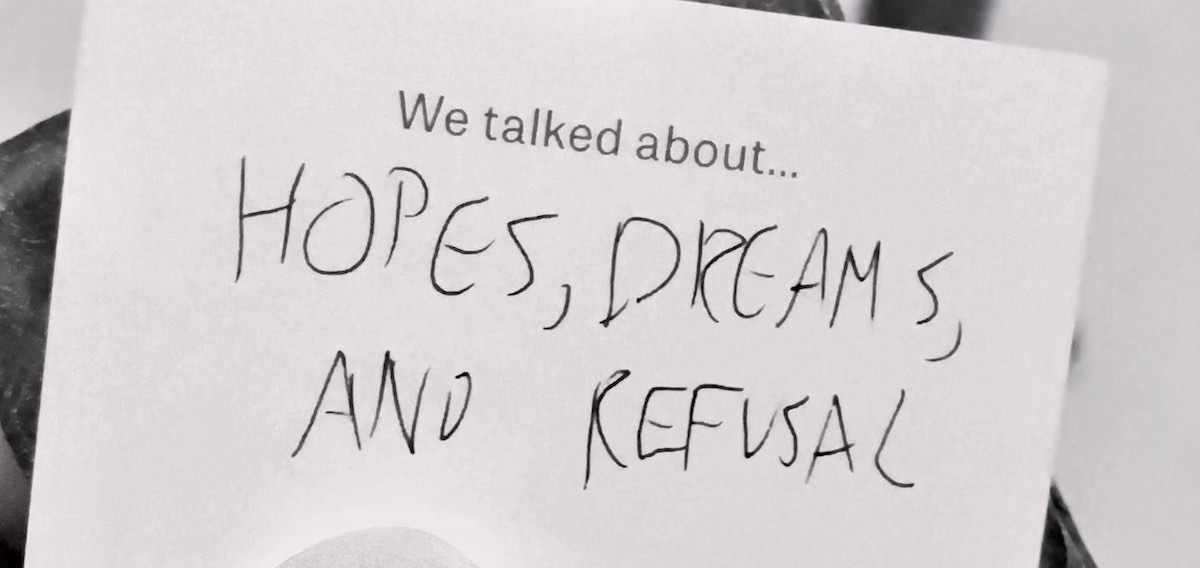 We talked about...
HOPES, DREAMS,
AND REFUSAL